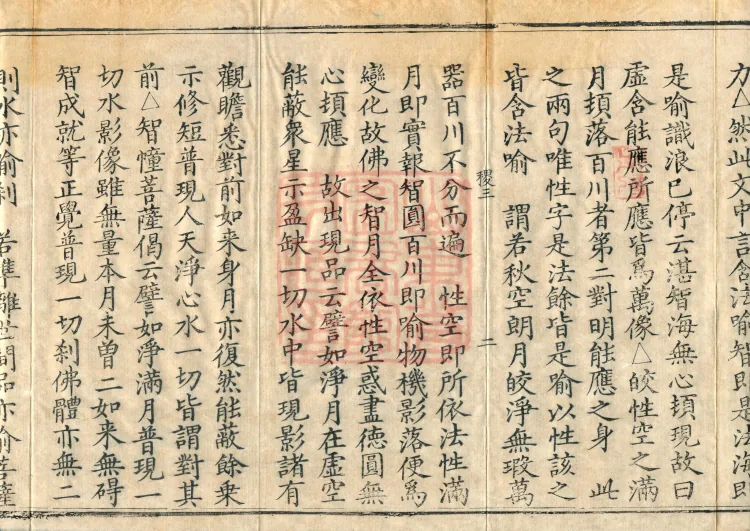 力△然此文中言含法喻智即是法海即
是喻識浪已停云湛智海無心頓現故曰
虛含能應所應皆爲萬像△皎性空之滿
月頓落百川者第二對明能應之身　此
之兩句唯性字是法餘皆是喻以性該之
皆含法喻　謂若秋空朗月皎淨無瑕萬
稷三　二
器百川不分而遍　性空即所依法性滿
月即實報智圓百川即喻物機影落便爲
變化故佛之智月全依性空惑盡德圓無
心頓應　故出現品云譬如淨月在虛空
能蔽衆星示盈缺一切水中皆現影諸有
觀瞻悉對前如来身月亦復然能蔽餘乗
示修短普現人天淨心水一切皆謂對其
前△智幢菩薩偈云譬如淨滿月普現一
切水影像雖無量本月未曽二如来無碍
智成就等正覺普現一切刹佛體亦無二
則水亦喻刹　若準離世間品亦喻菩薩